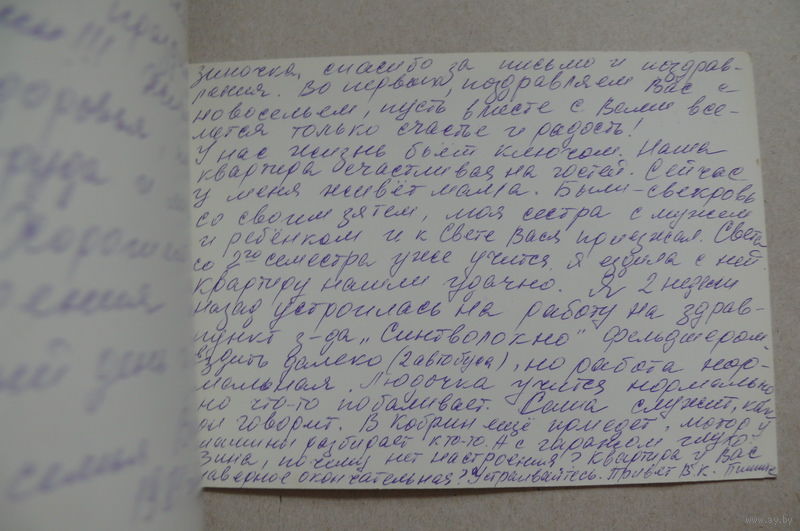 Зиночка, спасибо за письмо и поздрав-
ления. Во первых, поздравляем Вас с
новосельем, пусть вместе с Вами все-
лятся только счастье и радость!
У нас жизнь бьёт ключом. Наша
квартира счастливая на гостей. Сейчас
у меня живёт мама. Были - свекровь
со своим зятем, моя сестра с мужем
и ребёнком и к Свете Вася приезжал. Света
со 2го семестра уже учится, я ездила с ней.
квартиру нашли удачно. Я 2 недели
назад устроилась на работу на здрав-
пункт з-да "Синтволокно" фельдшером.
ездить далеко (2 автобуса), но работа нор-
мальная. Людочка учится нормально
но что-то побаливает. Саша служит, как
он говорит. В Кобрин ещё приедет, мотор у
машины разбирает кто-то. А с гаражом глухо.
Зина, почему нет настроения? квартира у Вас
наверное окончательная? Устраивайтесь. Привет В.К. Пишите
доровья
труда
Хороше
семья
www.ay.by